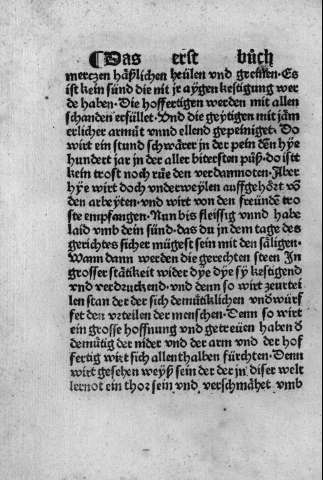 ¶Das erst bůch
merczen häßlichen heülen vnd greinen. Es
ist kein sünd die nit je aygen kestigung wer
de haben. Die hoffertigen werden mit allen
schanden erfüllet. Vnd die geytigen mit jäm
erlicher armůt vnnd ellend gepeiniget. Do
wirt ein stund schwärer in der pein deñ hye
hundert jar in der aller bitersten půß. do ist
kein trost noch růe den verdamnoten. Aber
hye wirt doch vnderweylen auffgehört võ
den arbeyten. vnd wirt von den freündẽ tro
ste empfangen. Nun bis fleissig vnnd habe
laid vmb dein sünd. das du in dem tage des
gerichtes sicher mügest sein mit den säligen.
Wann dann werden die gerechten steen In
grosser stätikeit wider dye dye sy kestigend
vnd verdruckend. vnd denn so wirt zeurtei
len stan der der sich demůtiklichen vndwürf
fet den vrteilen der menschen. Denn so wirt
ein grosse hoffnung vnd getreüen haben d̕
demůtig der nider vnd der arm vnd der hof
fertig wirt sich allenthalben fürchten. Denn
wirt gesehen weyß sein der der in diser welt
lernot ein thor sein vnd verschmähet vmb